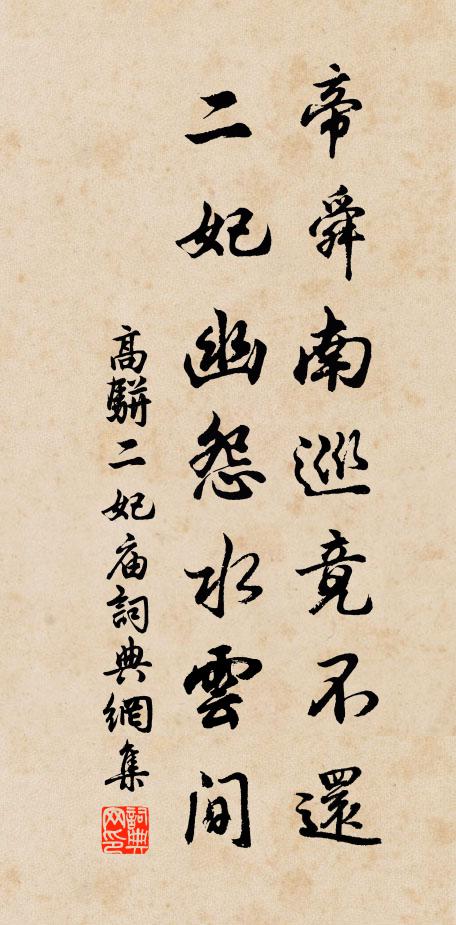 帝舜南巡竟不還
二妃幽怨水雲間
高駢二妃庙詞典網集
詞典網印